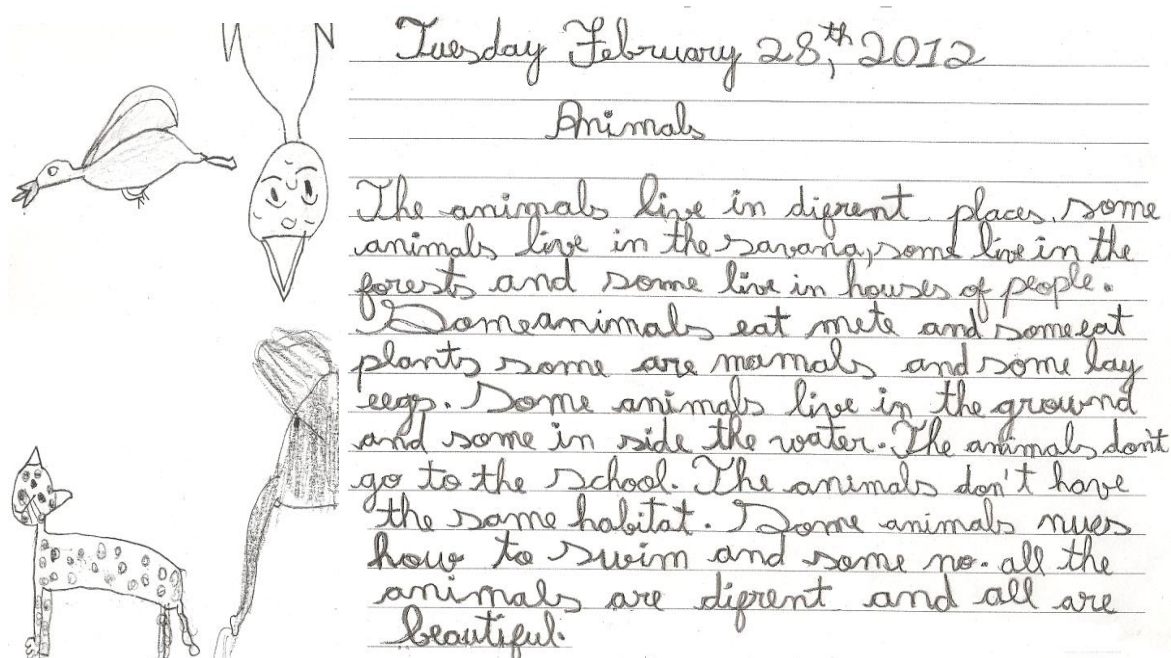 Tuesday February 28,th 2012
Animals
The animals live in difrent places, some
animals live in the savana, some live in the
forests and some live in houses of people.
Some animals eat mete and some eat
plants some are mamals and some lay
eegs. Some animals live in the grownd
and some in side the water. The animals don't
go to the school. The animals don't have
the same habitat. Some animals nues
how to swim and some no. all the
animals are difrent and all are
beautiful.